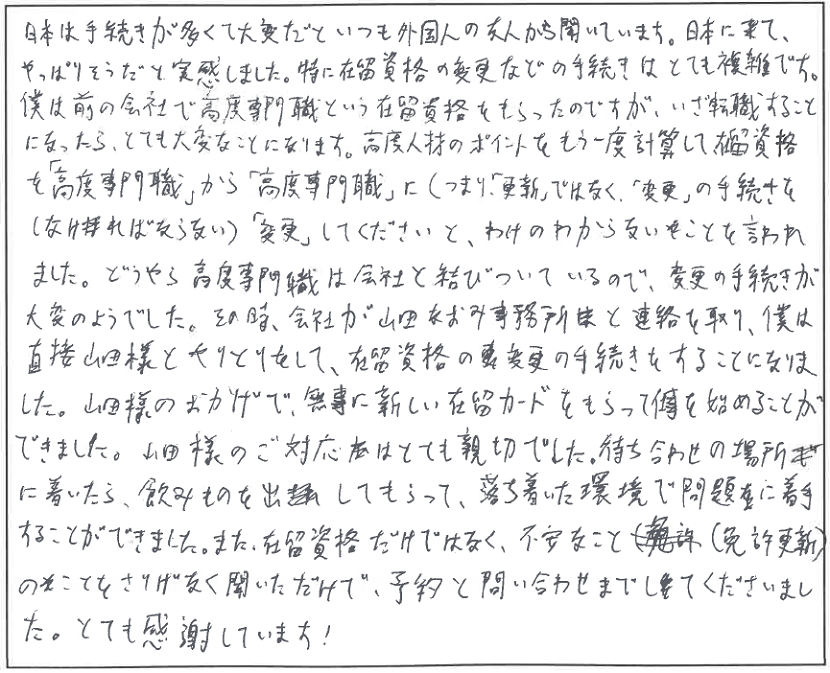 日本は手続きが多くて大変だといつも外国人の友人から聞いています。日本に来て、
やっぱりそうだと実感しました。特に在留資格の変更などの手続きはとても複雑です。
僕は前の会社で高度専門職という在留資格をもらったのですが、いざ転職すること
になったら、とても大変なことになります。高度人材のポイントをもう一度計算して、在留資格
を「高度専門職」から「高度専門職」に(つまり、「更新」ではなく、「変更」の手続きを
しなければならない)「変更」してくださいと、わけのわからないことを言われ
ました。どうやら高度専門職は会社と結びついているので、変更の手続きが
大変のようでした。その時、会社が山田なおみ事務所と連絡を取り、僕は
直接山田様とやりとりをして、在留資格の変更の手続きをすることになりま
した。山田様のおかげで、無事に新しい在留カードをもらって仕事を始めることが
できました。山田様のご対応はとても親切でした。待ち合わせの場所
に着いたら、飲みものを出してもらって、落ち着いた環境で問題に着手
することができました。また、在留資格だけではなく、不安なこと(免許更新)
のことをさりげなく聞いただけで、予約と問い合わせまでしてくださいまし
た。とても感謝しています!